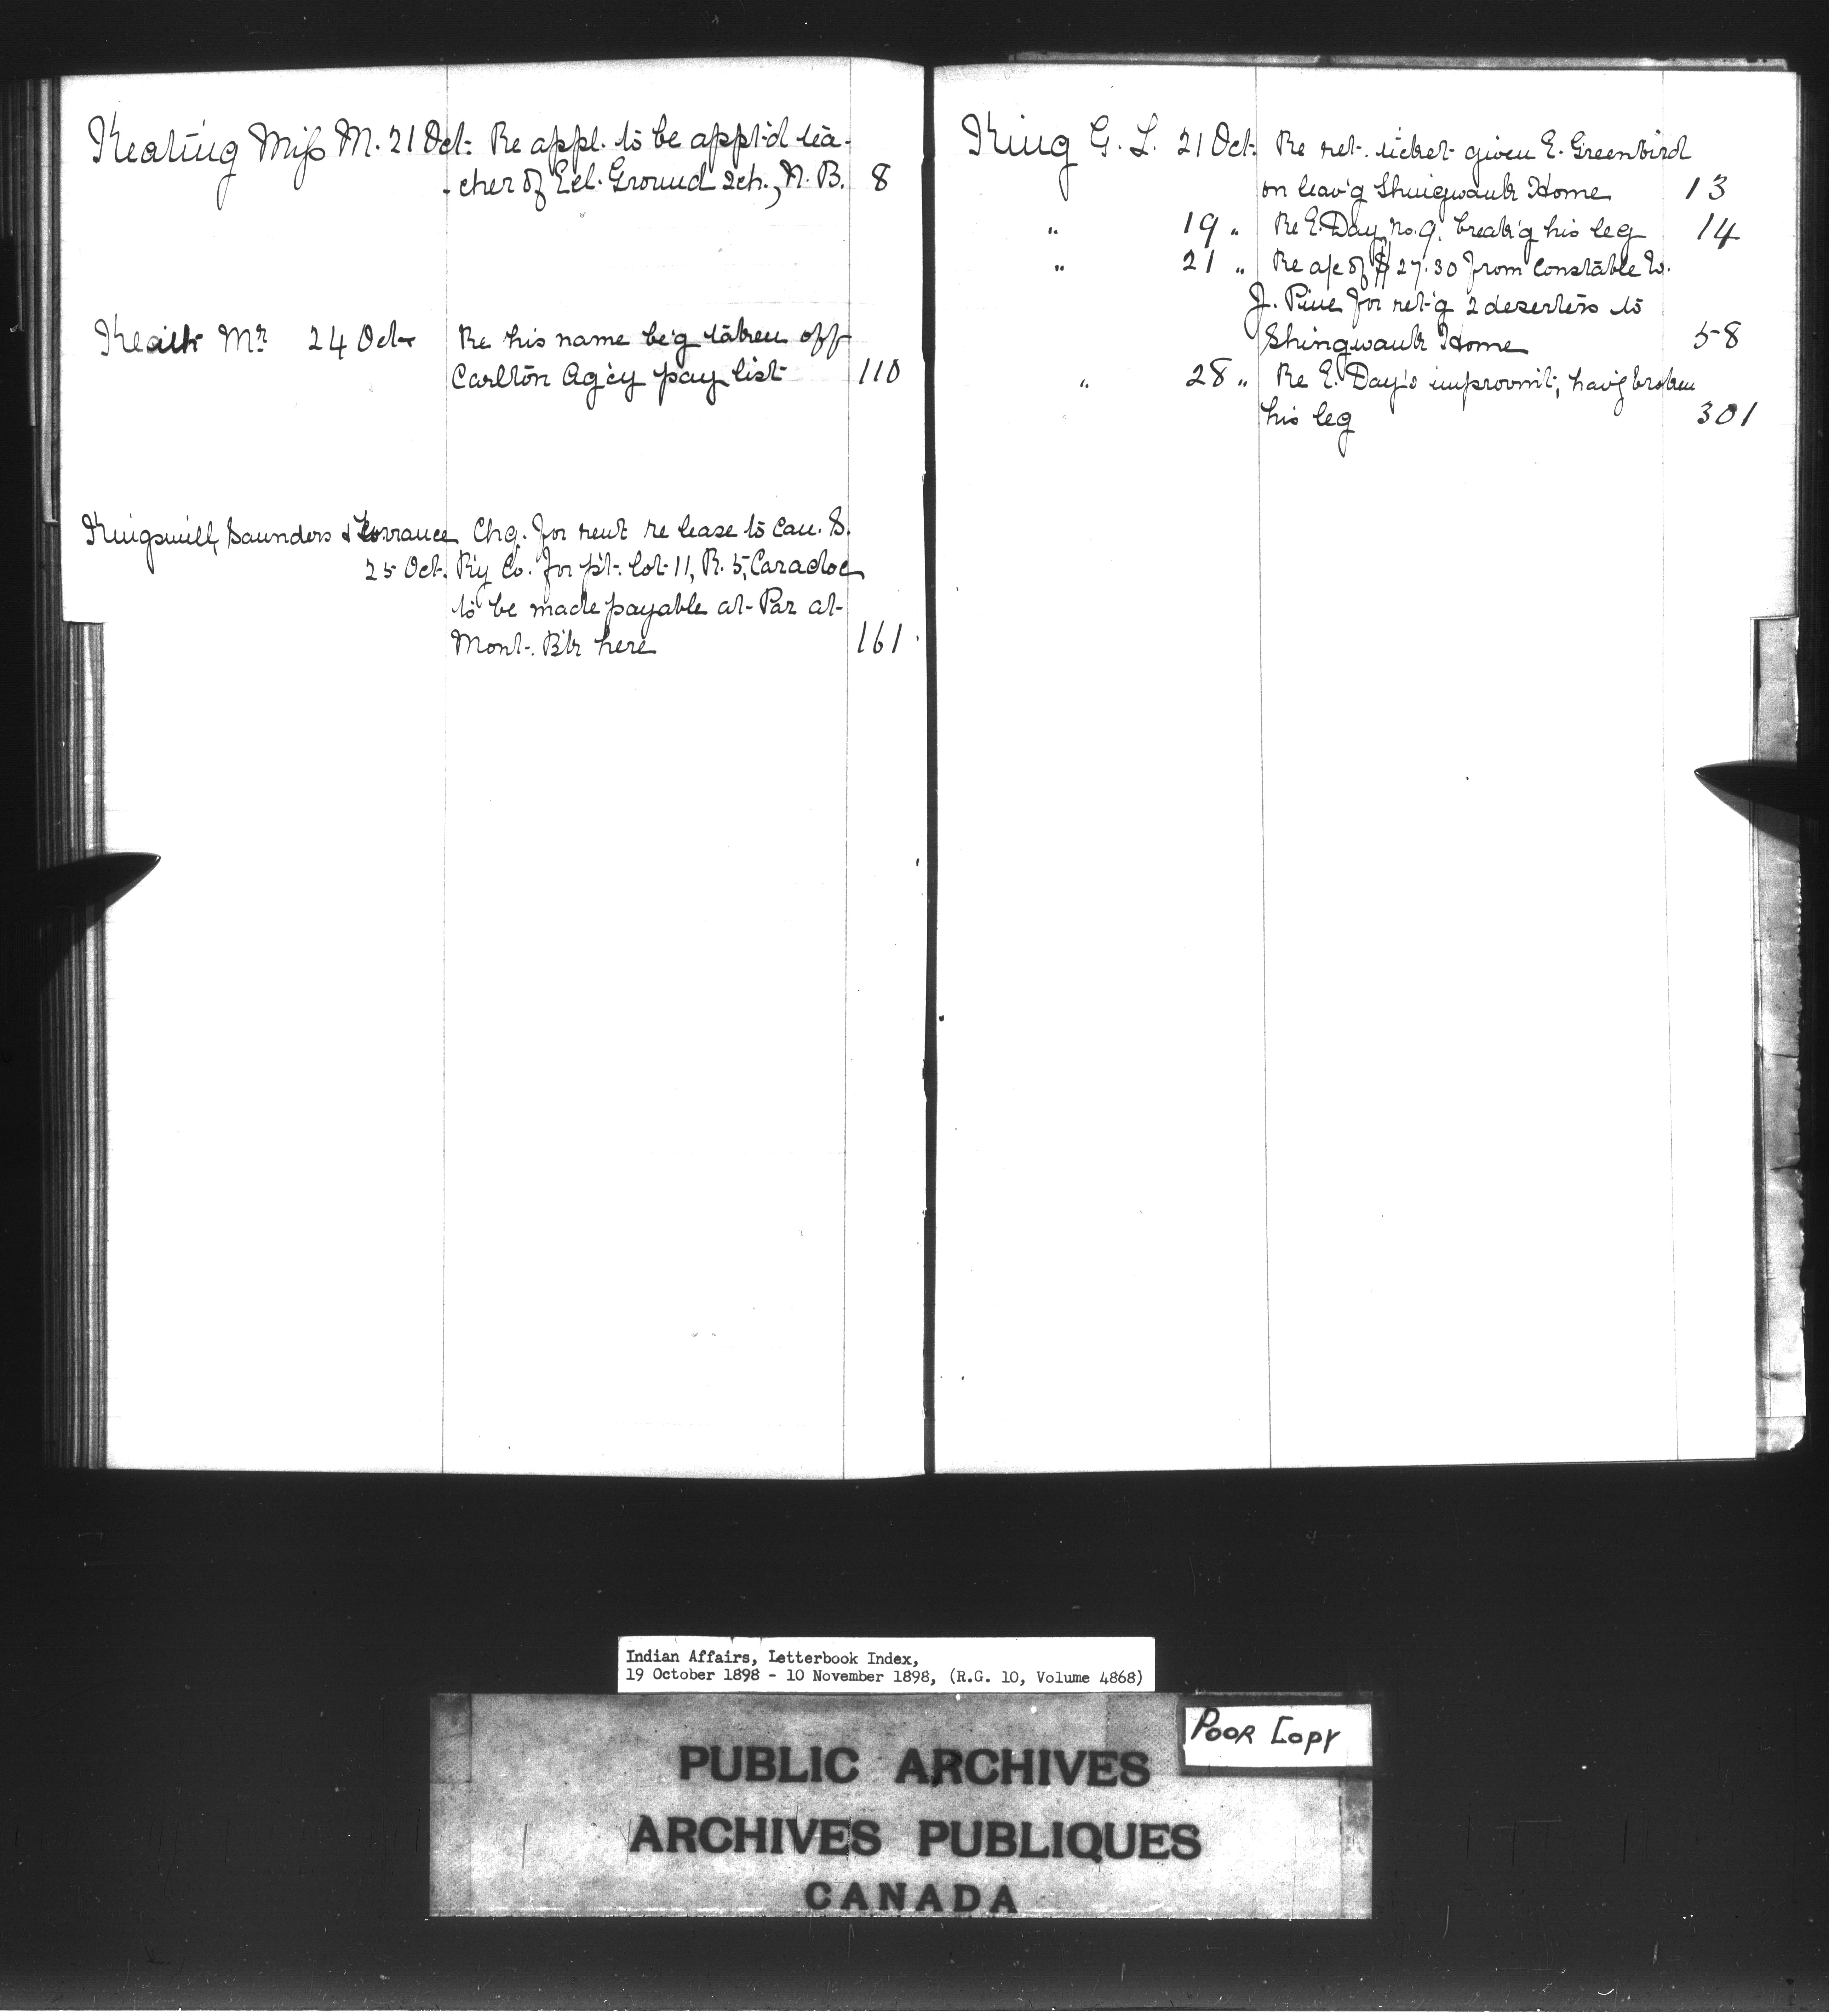 Keating Miss M. 21 Oct. Re appl. to be appt'd tea-
-cher of Eel Ground Sch., N. B. 8
Keith Mr 24 Oct. Re his name be'g taken off
Carlton Ag'cy pay list 110
Kingsmill, Saunders & Torrance Chq. for rent re lease to Can. S.
25 Oct. R'y Co. for p't. lot 11, R. 5, Caradoc,
to be made payable at Par at
Mont. B'k here 161
King G. L. 21 Oct. Re ret. ticket given E. Greenbird
on leav'g Shingwauk Home 13
" 19 " Re E. Day, No. 9, break'g his leg 14
" 21 " Re a/c of $27.30 from Constable W.
J. Pine for ret'g 2 deserters to
Shingwauk Home 58
" 28 " Re E. Day's improvm't, hav'g broken
his leg 301
Indian Affairs, Letterbook Index,
19 October 1898 - 10 November 1898, (R.G. 10, Volume 4868)
Poor Copy
PUBLIC ARCHIVES
ARCHIVES PUBLIQUES
CANADA